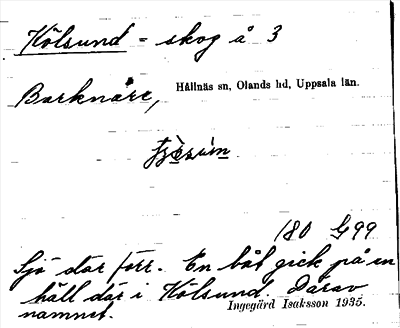 Kölsund = skog å 3
Barknåre, Hållnäs sn, Olands hd, Uppsala län.
180 G99
Sjö där förr. En båt gick på en
häll där i Kölsund. Därav
namnet.
Ingegärd Isaksson 1935.